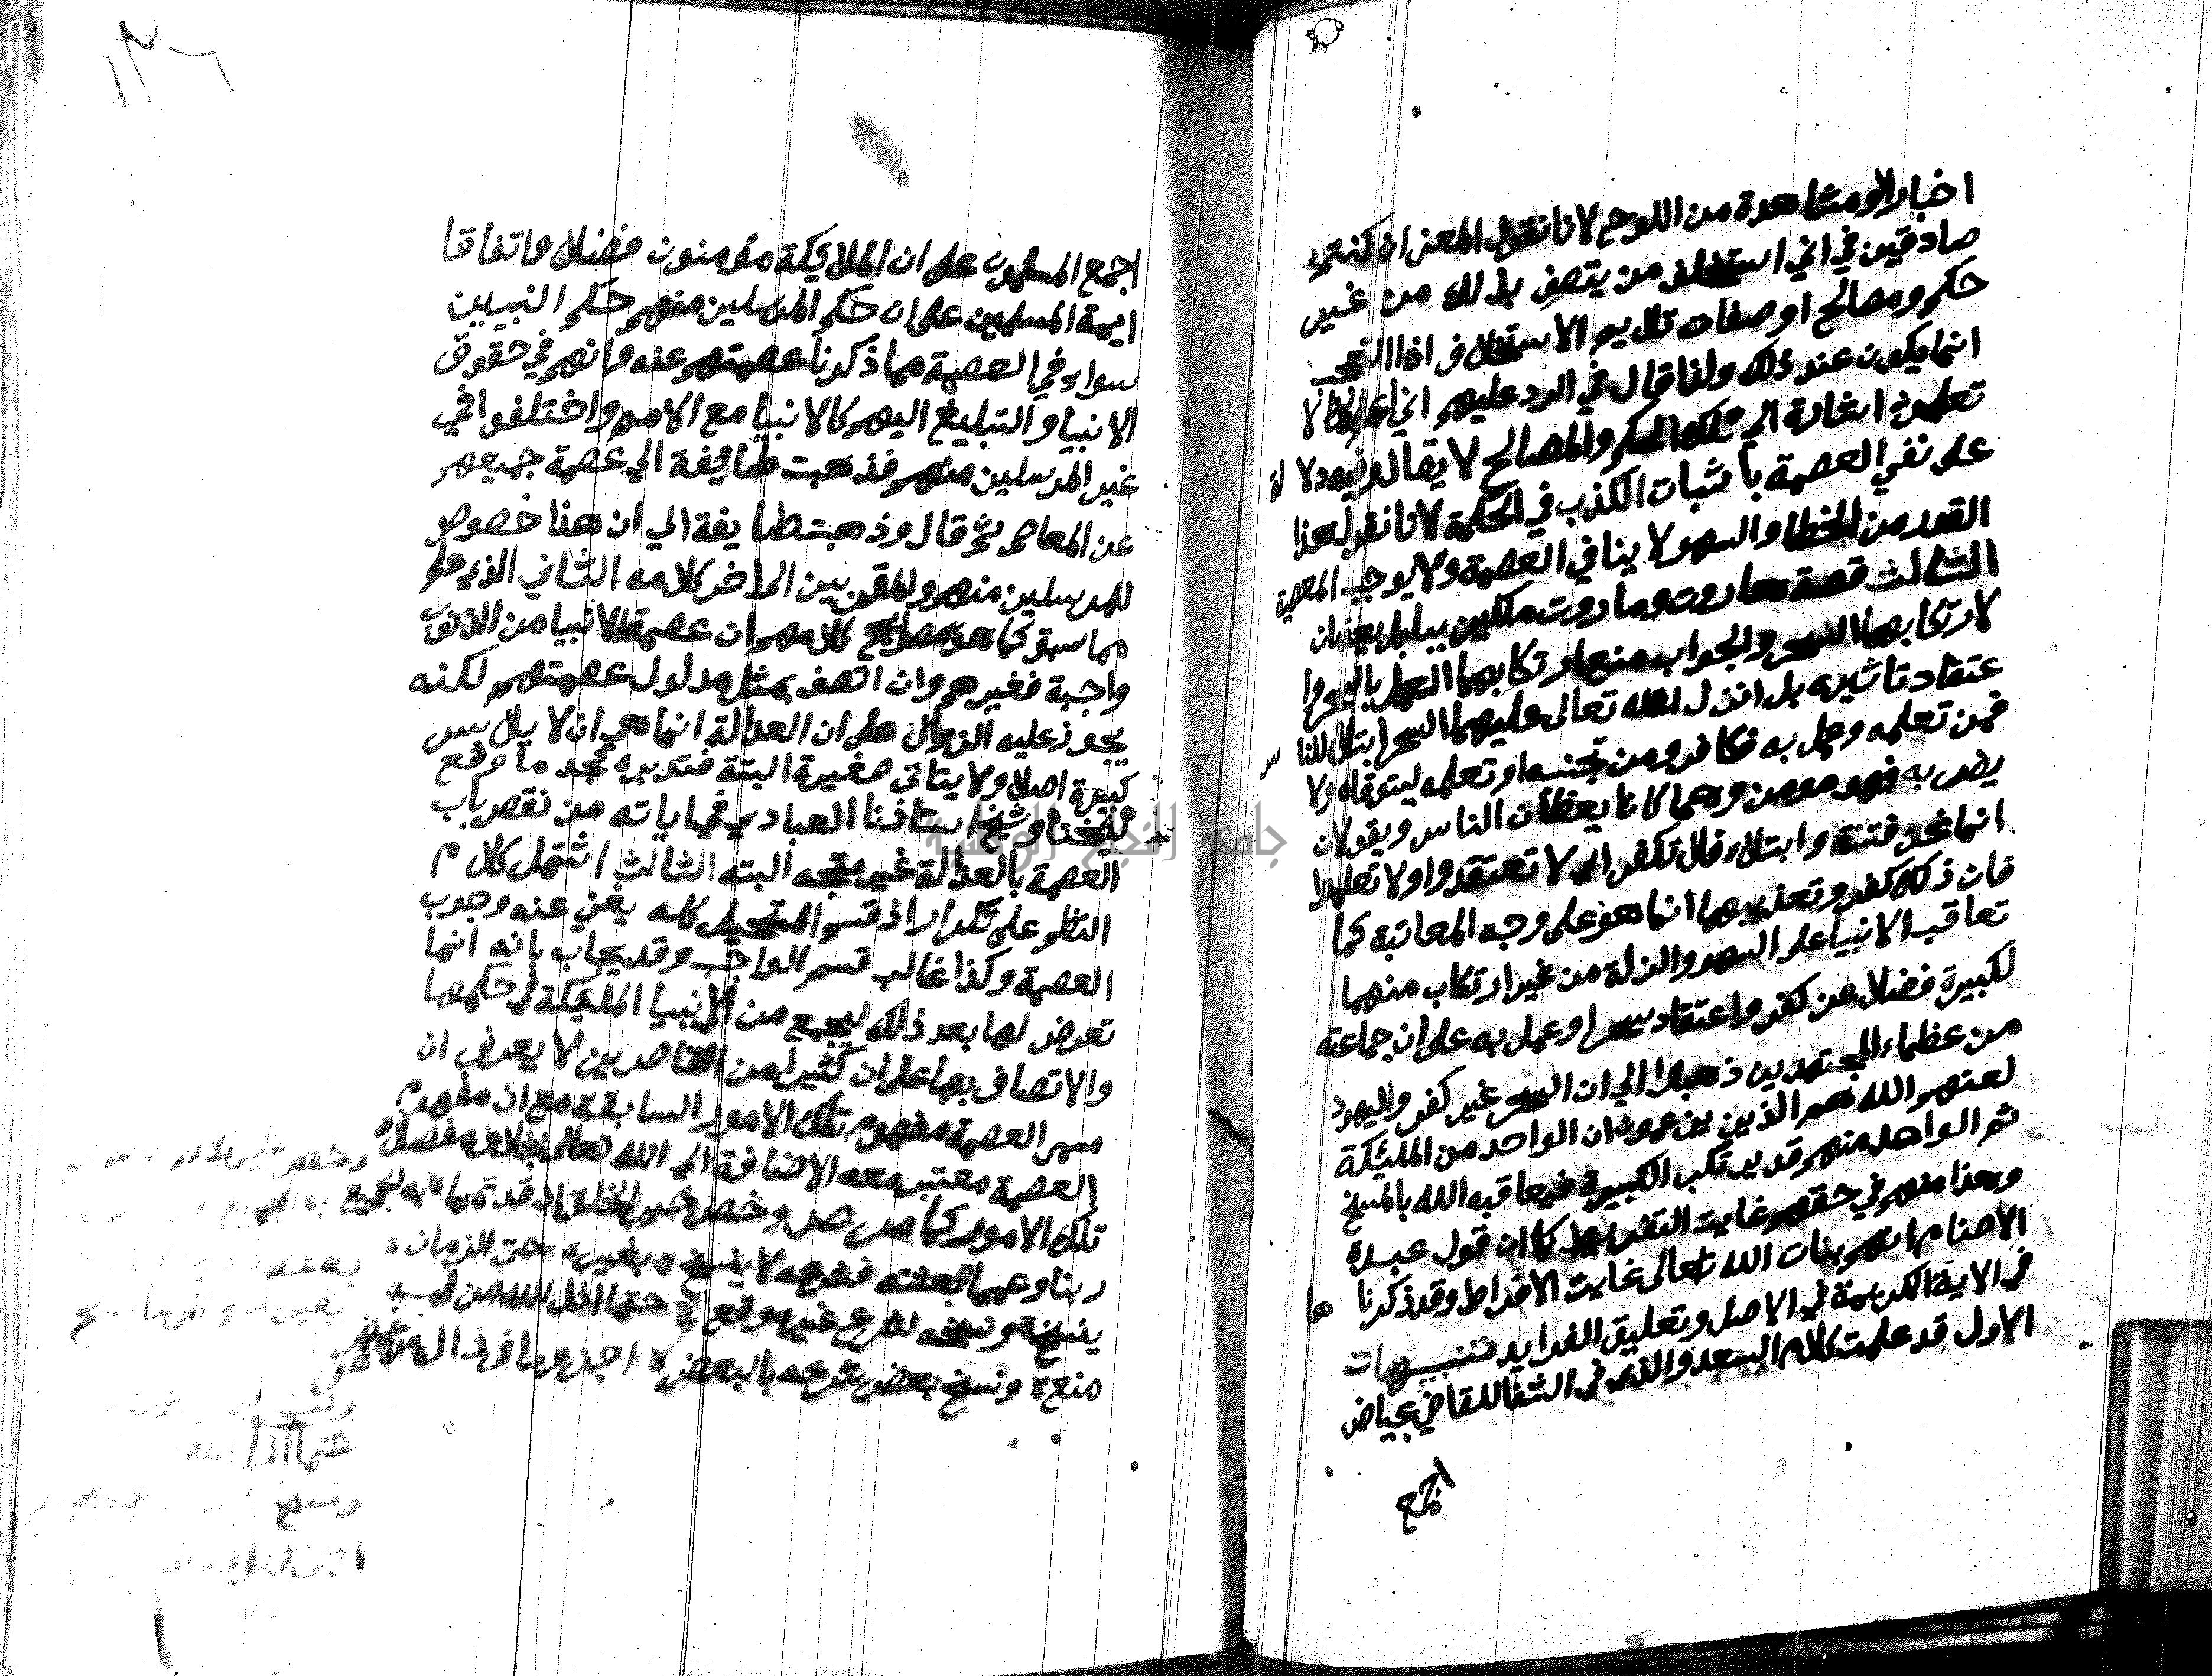 اخبارا او مشاهدة من اللوح لانا نقول المعني ان كنتم
صادقين في اني استخلف من يتصف بذلك من غير
حكم ومصالح او صفات تلايم الاستخلاف اذ التعجب
انما يكون عند ذلك ولذا قال في الرد عليهم اني اعلم ما لا
تعلمون اشارة الي تلك الحكم والمصالح لا يقال فيه دلالة
علي نفي العصمة باثبات الكذب في الحكمة لانا نقول هذا
القدر من الخطا والسهو لا ينافي العصمة ولا يوجب المعصية
الثالث قصة هاروت وماروت ملكين ببابل يعذبان
لارتكابهما السحر والجواب منع ارتكابهما العمل بالسحر وا
عتقاد تاثيره بل انزل الله تعالى عليهما السحر ابتلا للناس
فمن تعلمه وعمل به فكافر ومن تجنبه او تعلمه ليتوقاه ولا
يضر به فهو مومن وهما كانا يعظان الناس ويقولان
انما نحن فتنة وابتلاء فلا تكفر اي لا تعتقدوا ولا تعلموا
فان ذلك كفر وتعذيبهما انما هو على وجه المعاتبة كما
تعاقب الانبيا على السهو والزلة من غير ارتكاب منهما
لكبيرة فضلا عن كفر واعتقاد سحر او عمل به على ان جماعة
من عظماء المجتهدين ذهبوا الي ان السحر غير كفر واليهود
لعنهم الله هم الذين يزعمون ان الواحد من المليكة
ثم الواحد منهم قد يرتكب الكبيرة فيعاقبه الله بالمسخ
وهذا منهم في حقهم غايت التفريط كما ان قول عبدة
الاصنام انهم بنات الله تعالى غايت الافراط وقد ذكرنا ها
في الاية الكريمة في الاصل وتعليق الفرايد تنبيهات
الاول قد علمت كلام السعد والذي في الشفا للقاضي عياض
اجمع
اجمع المسلمون على ان الملايكة مؤمنون فضلا واتفاقا
ايمة المسلمين على ان حكم المرسلين منهم حكم النبيين
سواء في العصمة مما ذكرنا عصمتهم عنه وانهم في حقوق
الانبيا والتبليغ اليهم كالانبيا مع الامم واختلفوا في
غير المرسلين منهم فذهبت طايفة الي عصمة جميعهم
عن المعاصي ثم قال وذهبت طايفة الي ان هذا خصوص
للمرسلين منهم والمقربين الى اخر كلامه الثاني الذي علم
مما سبق كما هو صريح كلامهم ان عصمة الانبيا من الذنوب
واجبة فغيرهم وان اتصف بمثل مدلول عصمتهم لكنه
يجوز عليه الزوال على ان العدالة انما هي ان لا يلابس
كبيرة اصلا ولا يتاتى صغيرة البتة فتدبره تجد ما وقع
لشيخنا وشيخ استاذنا العبادي في اياته من نقص باب
العصمة بالعدالة غير متجه البته الثالث اشتمل كلام
النظم على تكرار اذ قسم المستحيل كله يغني عنه وجوب
العصمة وكذا غالب قسم الواجب وقد يجاب بانه انما
تعرض لها بعد ذلك ليجمع من الانبيا المليكة في حكمها
والاتصاف بها على ان كثيرا من القاصرين لا يعرف ان
مسمى العصمة مفهوم تلك الامور السابقة مع ان مفهوم
العصمة معتبر معه الاضافة الى الله تعالى بخلاف مفصل
تلك الامور كما مر ص وخص خير الخلق ان قد تمما به الجميع
ربنا وعمما بعثته فشرعه لا ينسخ بغيره حتى الزمان
ينسخ ونسخه لشرع غيره وقع حتما اذل الله من له
منع ونسخ بعض شرعه بالبعض اجز وما في ذا له من غض